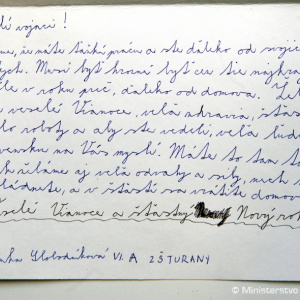 lí vojaci!
me, že máte ťažkú prácu a ste ďaleko od svojic
ých. Musí byť hrozné byť cez tie najkra
le v roku preč, ďaleko od domova. Žel
veselé Vianoce, veľa zdravia, šťas
lo roboty a aby ste vedeli, veľa ľud
vensku na Vás myslí. Máte to tam ťa
želáme aj veľa odvahy a sily, nech
ládnete, a v šťastí sa vrátite domov
selé Vianoce a šťastný Nový rok
nka Slobodníková VI.A ZŠTURANY
© Ministerstvo